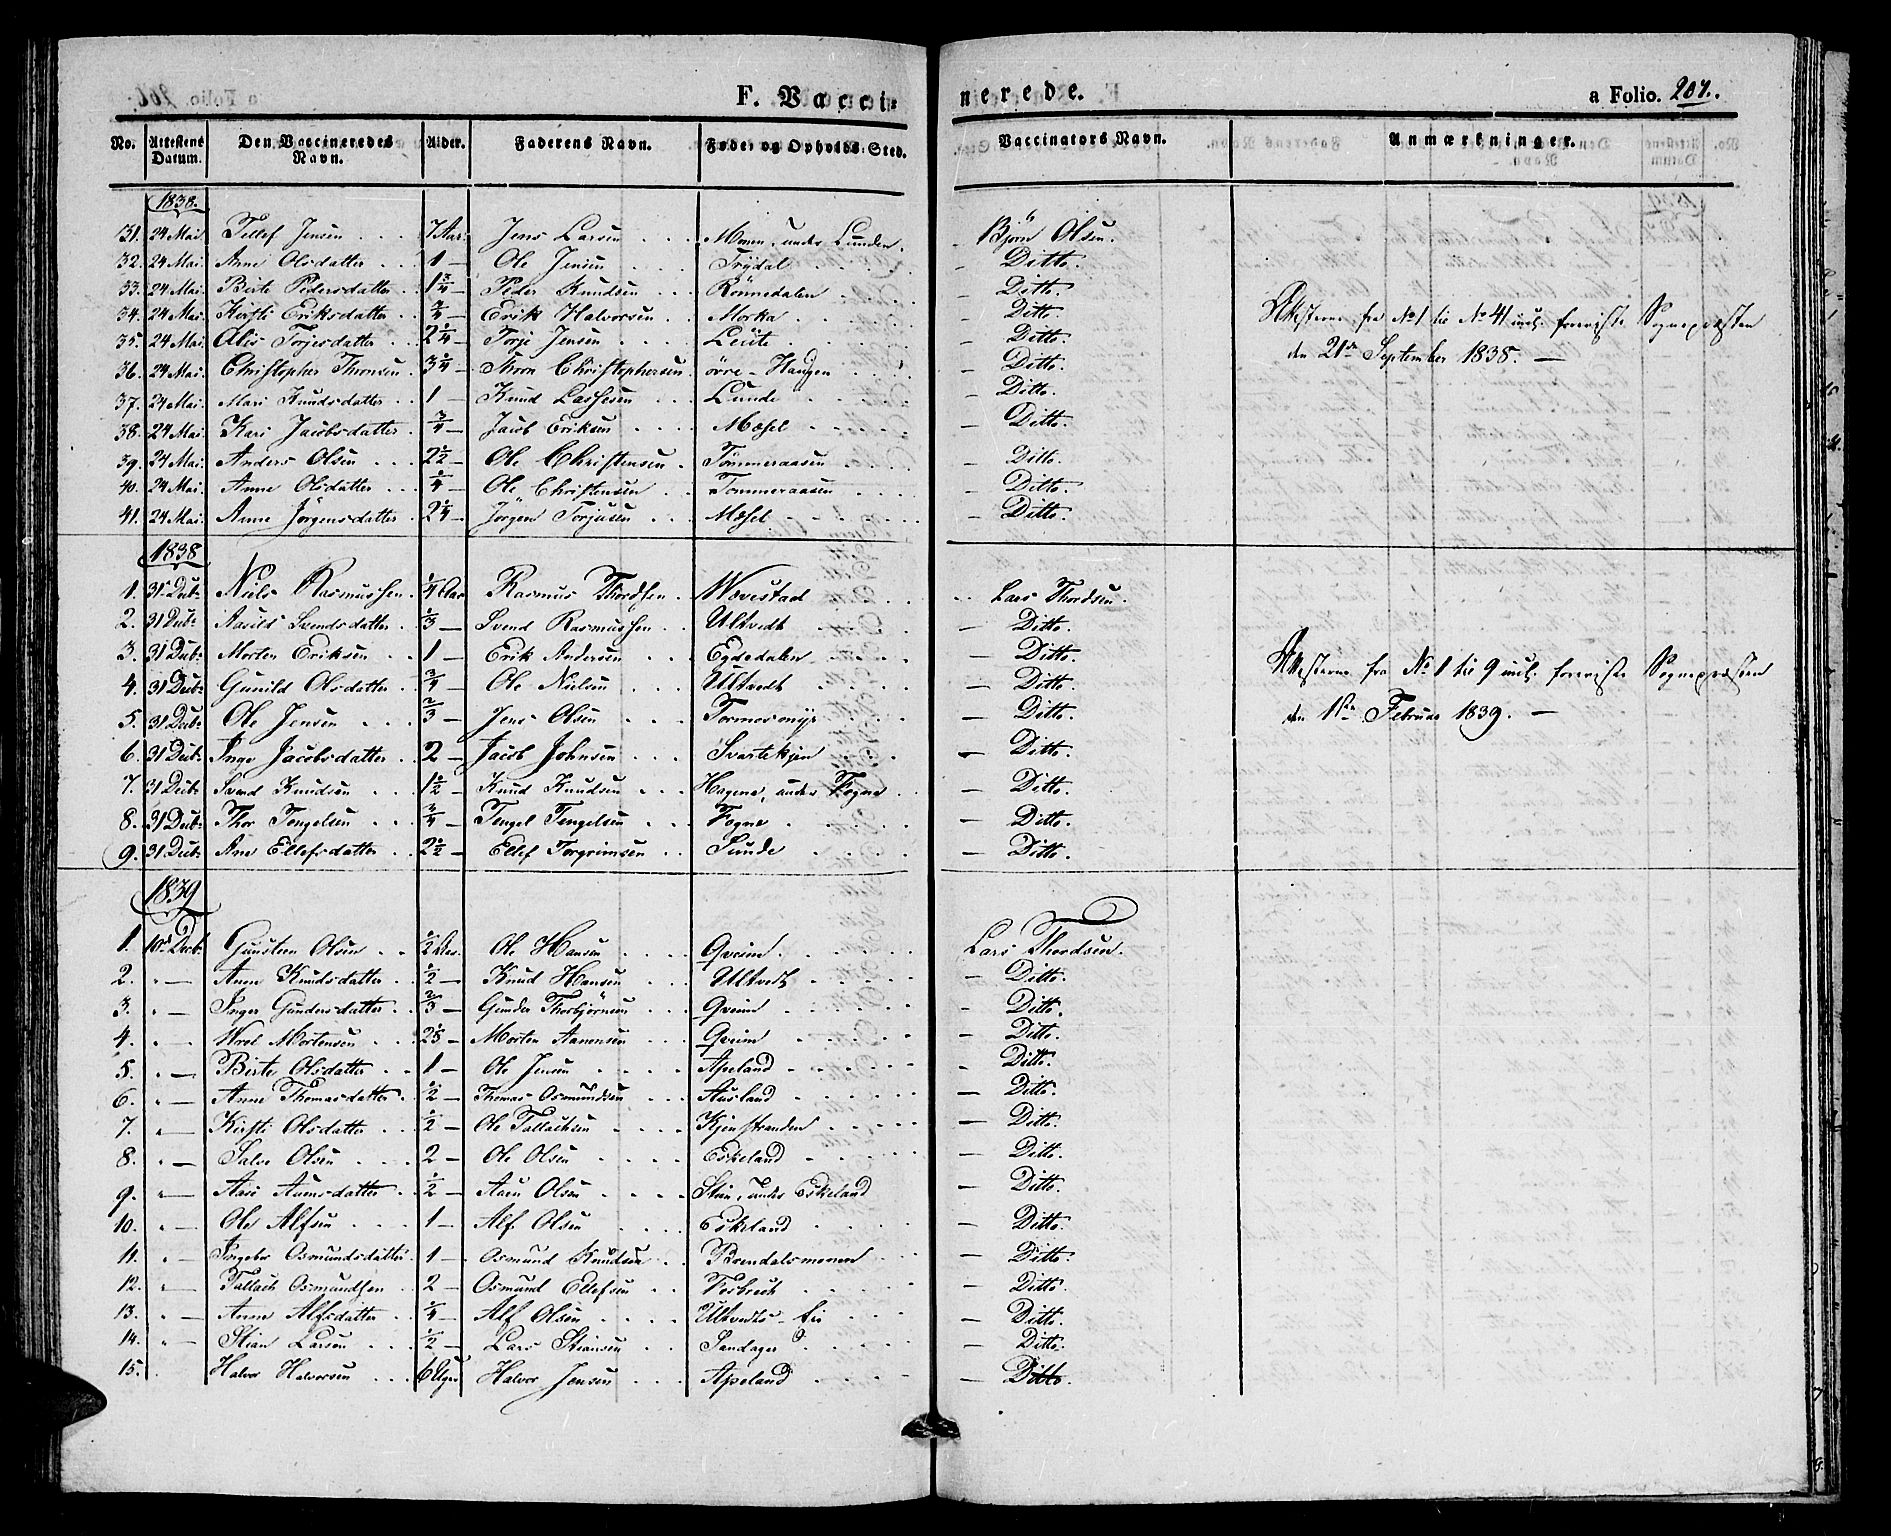 F. Vaccinerede. a Folio. 207.
No. Attestens Datum. Den Vaccineredes Navn. Alder. Faderens Navn. Føde- og Opholds-Sted. Vaccinators Navn. Anmærkninger.
1838.
31. 24 Mai. Tellef Jensen 7 Aar. Jens Larsen Moen, under Lunden. Bjørn Olsen.
32. 24 Mai. Anne Olsdatter 1 — Ole Jensen Trydal — Ditto.
33. 24 Mai. Birte Pedersdatter 1 3/4 — Peder Knudsen Rönnedalen — Ditto.
34. 24 Mai. Kirsti Eriksdatter 3/4 — Erik Halvorsen Morka — Ditto
35. 24 Mai. Alis Torjesdatter 2 1/4 — Torje Jensen Leite — Ditto.
36. 24 Mai. Christopher Thorsen 3 1/4 — Thorn Christophersen övre-Haugen — Ditto.
37. 24 Mai. Mari Knudsdatter 1 — Knud Lassesen Lunde — Ditto.
38. 24 Mai. Kari Jacobsdatter 3/4 — Jacob Eriksen Mæsel — Ditto.
39. 24 Mai. Anders Olsen 2 1/2 — Ole Christensen Tömmeraasen — Ditto.
40. 24 Mai. Anne Olsdatter 1/4 — Ole Christensen Tömmeraasen — Ditto.
41. 24 Mai. Anne Jörgensdatter 2 1/4 — Jörgen Torjusen Mæsel — Ditto.
Attesterne fra No 1 til No 41 incl. foreviste Sognepræsten
den 21de September 1838. —
1838
1. 31 Decb. Niels Rasmussen 1/4 Aar Rasmus Thordsen Wævestad Lars Thordsen.
2. 31 Decb. Aasild Svendsdatter 1/3 — Svend Rasmussen Ultvedt — Ditto.
3. 31 Decb. Morten Eriksen 1 — Erik Andersen Egdedalen — Ditto.
4. 31 Decb. Gunild Olsdatter 3/4 — Ole Nielsen Ultvedt — Ditto.
5. 31 Decb. Ole Jensen 2/3 — Jens Olsen Tormosmyr — Ditto.
6. 31 Decb. Inge Jacobsdatter 2 — Jacob Johnsen Svartekjen — Ditto.
7. 31 Decb. Svend Knudsen 1 1/2 — Knud Knudsen Hagene, under Fogne — Ditto.
8. 31 Decb. Thor Tengelsen 3/4 — Tengel Tengelsen Fogne — Ditto.
9. 31 Decb. Ane Ellefsdatter 2 1/2 — Ellef Torgrimsen Sunde — Ditto.
Attesterne fra No 1 til 9 incl. foreviste Sognepræsten
den 1ste Februar 1839. —
1839
1. 10 Decb. Gunsten Olsen 1/2 Aar. Ole Hansen Qveim. Lars Thordsen.
2. " — Anne Knudsdatter 1/2 — Knud Hansen Ultvedt — Ditto.
3. " — Inger Gundersdatter 2/3 — Gunder Thorbjörnsen Qveim — Ditto.
4. " — Wrol Mortensen 25 — Morten Aanensen Qveim — Ditto.
5. " — Birte Olsdatter 1 — Ole Jensen Apeland — Ditto.
6. " — Anne Thomasdatter 1/2 — Thomas Osmundsen Ausland — Ditto.
7. " — Kirsti Olsdatter 1/2 — Ole Tallachsen Kjenstranden — Ditto.
8. " — Salve Olsen 2 — Ole Olsen Eskeland — Ditto.
9. " — Aase Aaensdatter 1/2 — Aaen Olsen Stien, under Eskeland — Ditto.
10. " — Ole Alfsen 1 — Alf Olsen Eskeland — Ditto.
11. " — Ingebor Osmundsdatter 1 — Osmund Knudsen Brendalsmonen — Ditto.
12. " — Tallach Osmundsen 2 — Osmund Ellefsen Fosbrech — Ditto.
13. " — Anne Alfsdatter 1/4 — Alf Olsen Ultvedts-Eie — Ditto.
14. " — Stian Larsen 1/2 — Lars Stiansen Sandager — Ditto.
15. Halvor Halvorsen 6 Uger Halvor Jensen Apeland — Ditto.